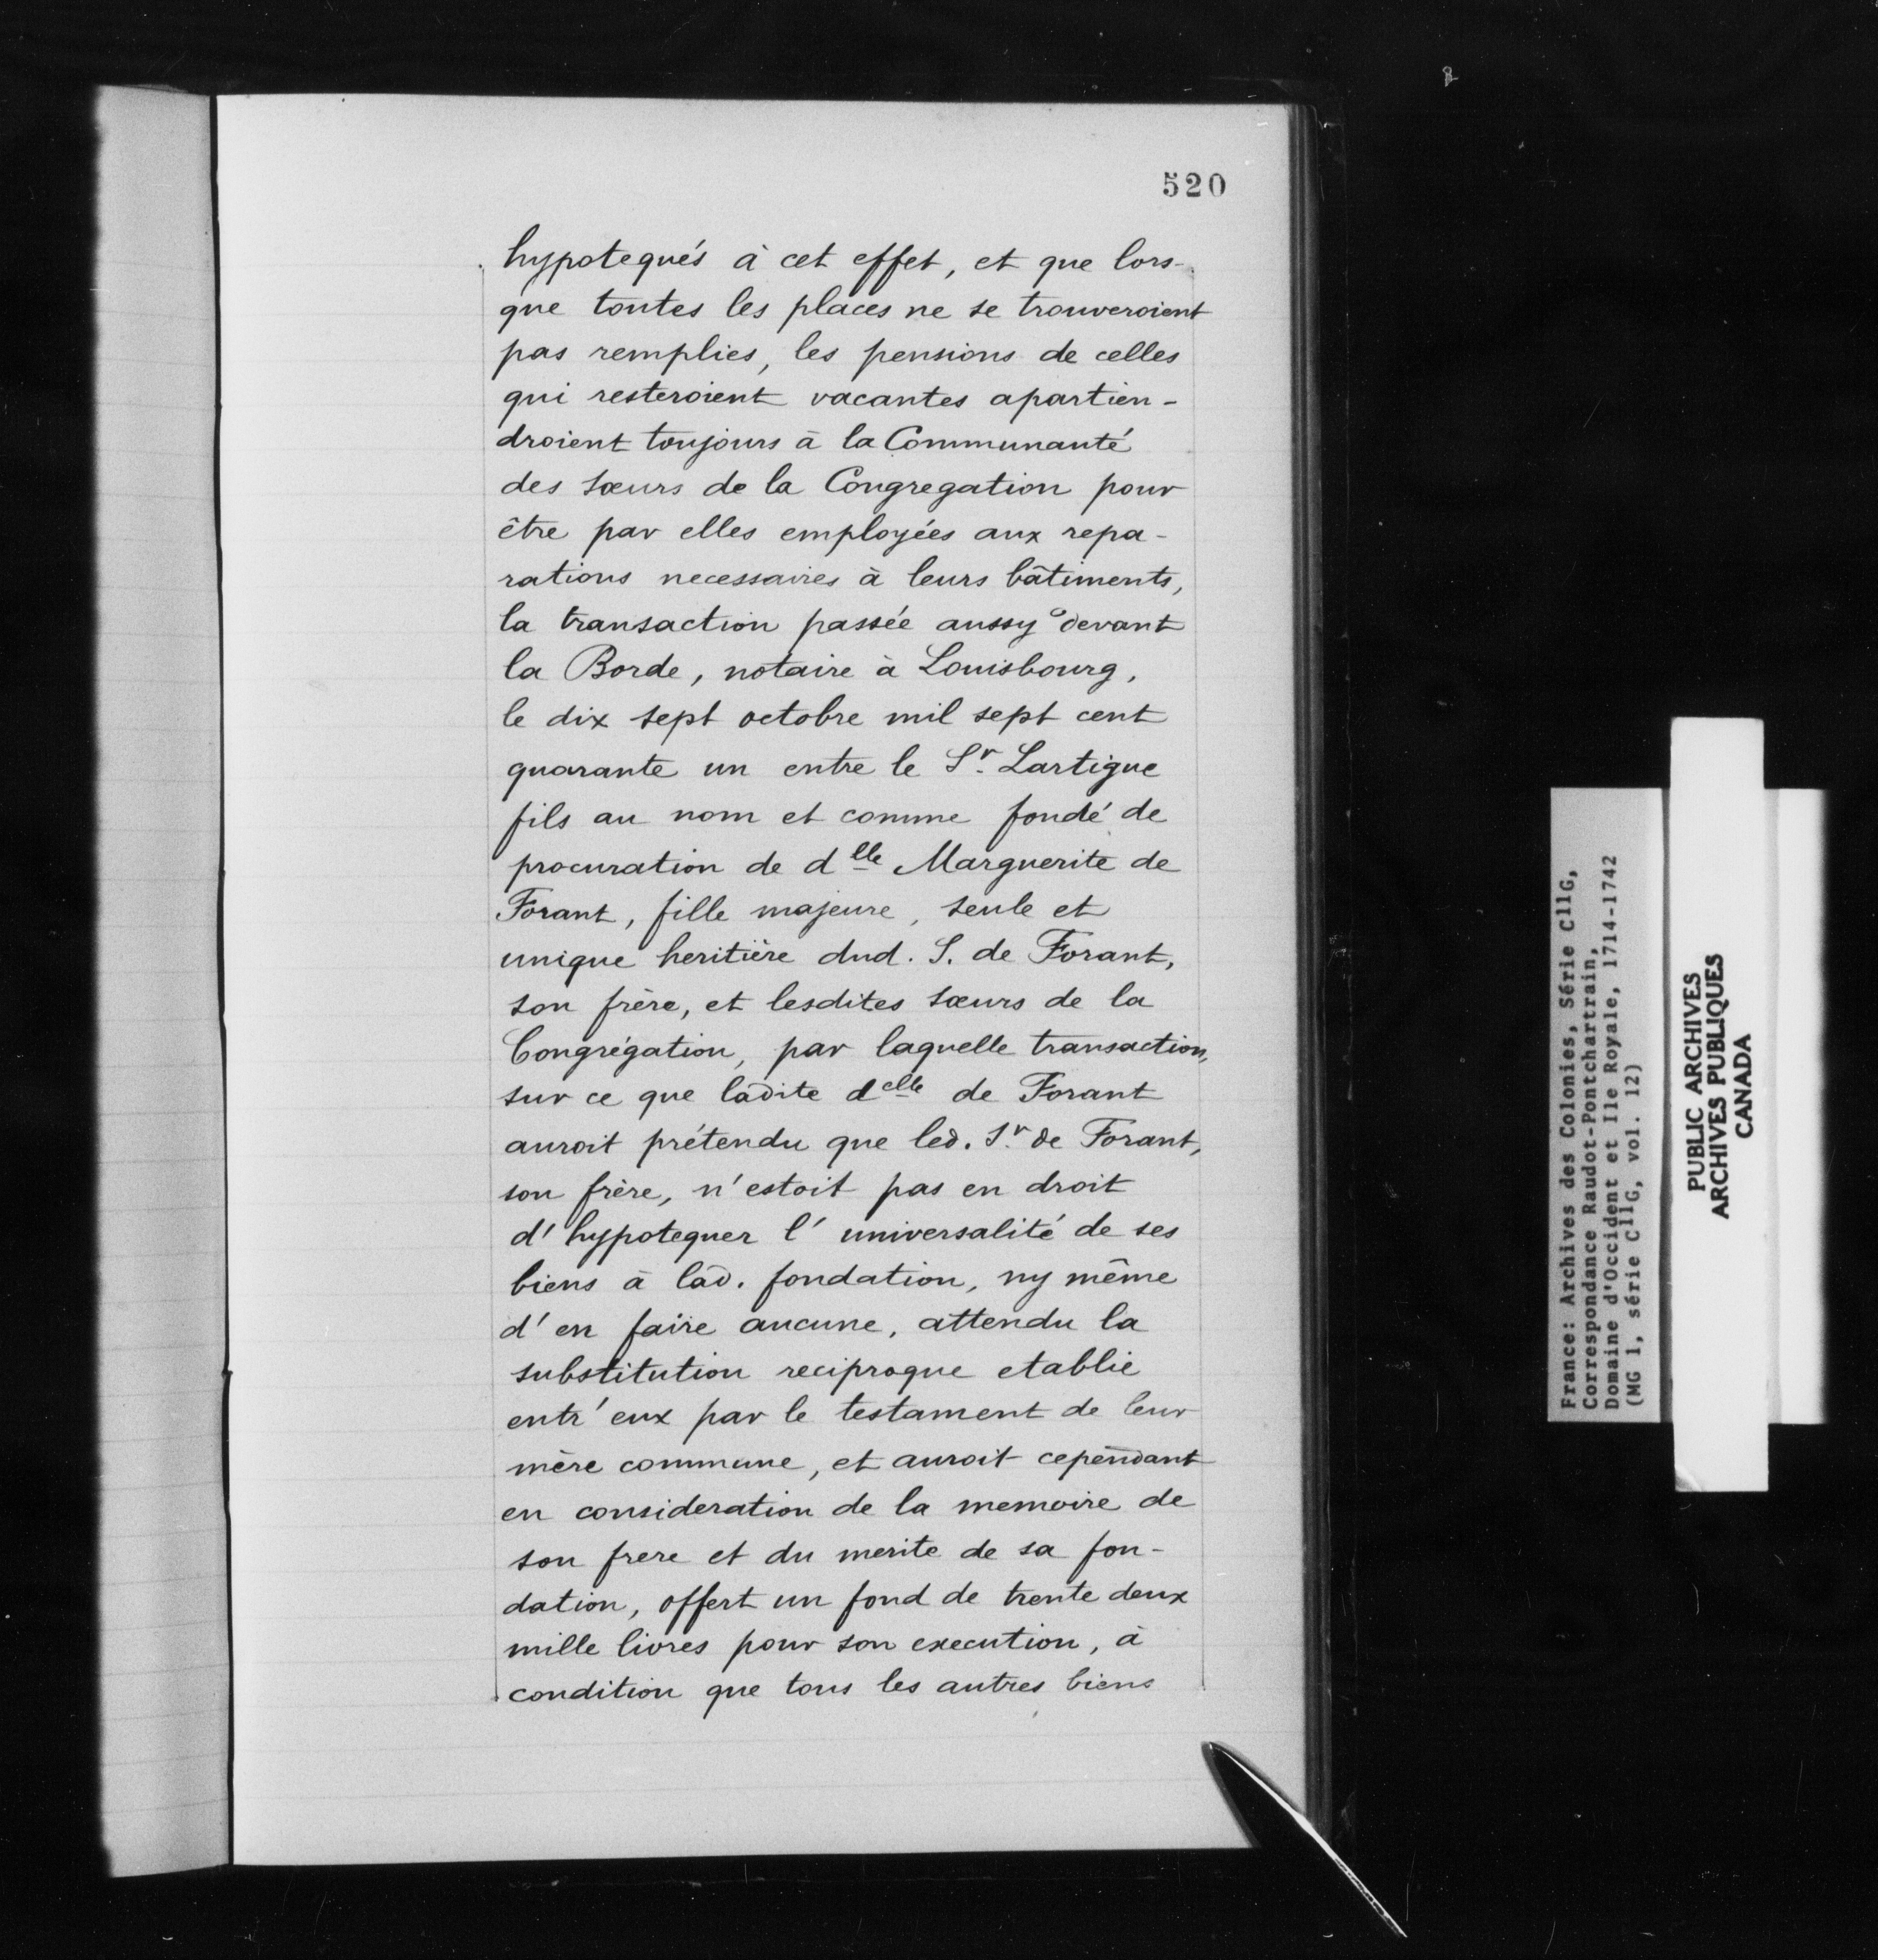 520
hypotequés à cet effet, et que lors-
que toutes les places ne se trouveroient
pas remplies, les pensions de celles
qui resteroient vacantes apartien-
droient toujours à la Communauté
des sœurs de la Congregation pour
être par elles employées aux repa-
rations necessaires à leurs bâtiments,
la transaction passée aussy devant
la Borde, notaire à Louisbourg,
le dix sept octobre mil sept cent
quarante un entre le Sr. Lartigue
fils au nom et comme fondé de
procuration de dlle Marguerite de
Forant, fille majeure, seule et
unique heritière dud. S. de Forant,
son frère, et lesdites sœurs de la
Congrégation, par laquelle transaction,
sur ce que ladite delle de Forant
auroit prétendu que led. Sr. de Forant,
son frère, n'estoit pas en droit
d'hypotequer l'universalité de ses
biens à lad. fondation, ny même
d'en faire aucune, attendu la
substitution reciproque etablie
entr'eux par le testament de leur
mère commune, et auroit cependant
en consideration de la memoire de
son frere et du merite de sa fon-
dation, offert un fond de trente deux
mille livres pour son execution, à
condition que tous les autres biens
France: Archives des Colonies, Série C11G,
Correspondance Raudot-Pontchartrain,
Domaine d'Occident et Ile Royale, 1714-1742
(MG 1, série C11G, vol. 12)
PUBLIC ARCHIVES
ARCHIVES PUBLIQUES
CANADA